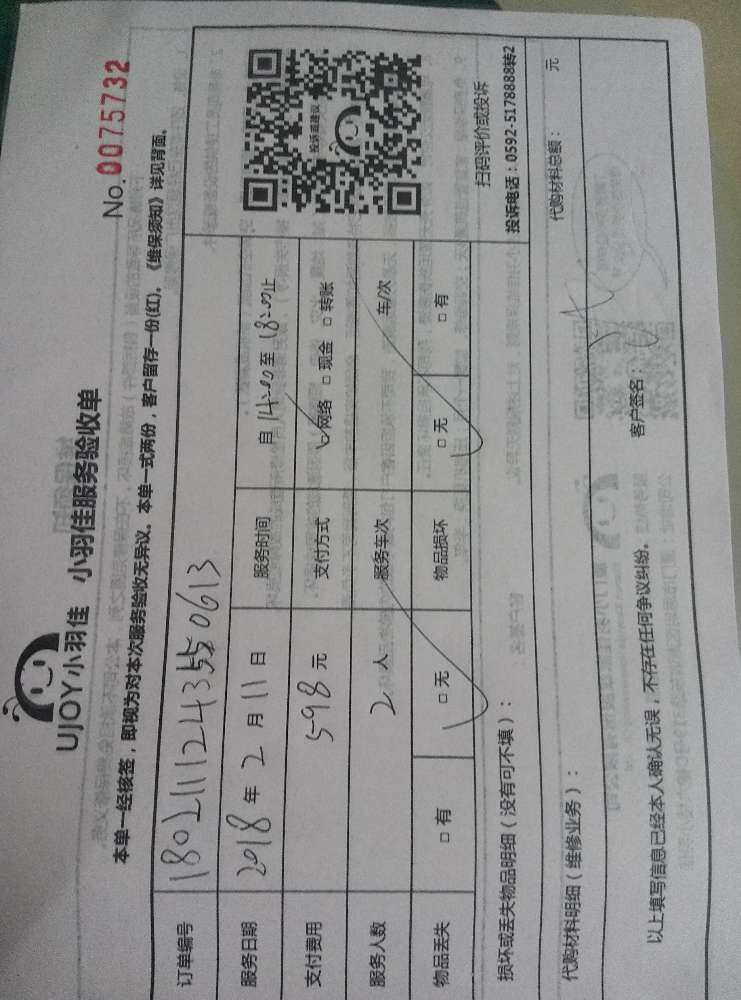 UJOY小羽佳 小羽佳服务验收单
No.0075732
本单一经核签，即视为对本次服务验收无异议。本单一式两份，客户留存一份(红)。《维保须知》详见背面。
订单编号 1802111243550613
服务日期 2018年2月11日 服务时间 自14:00至18:00止
支付费用 598元 支付方式 ☑网络 □现金 □转账
服务人数 2人 服务车次 车/次
物品丢失 □有 □无 物品损坏 □无 □有
投诉或建议
扫码评价或投诉
投诉电话：0592-5178888转2
损坏或丢失物品明细（没有可不填）：
代购材料明细（维修业务）： 代购材料总额： 元
以上填写信息已经本人确认无误，不存在任何争议纠纷。 客户签名：